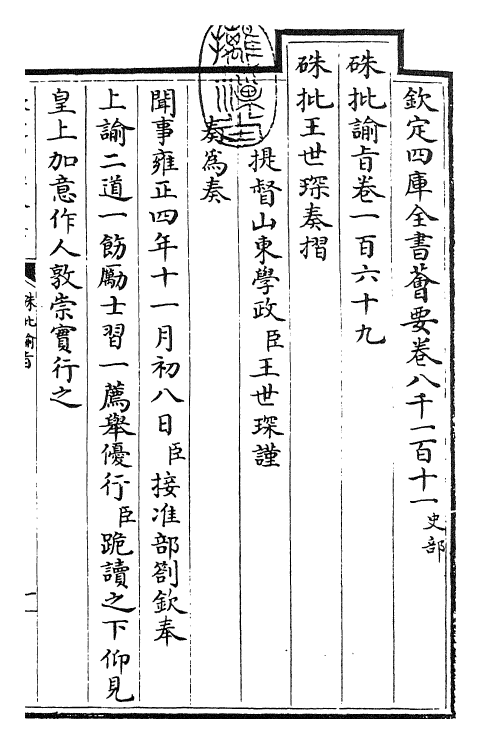 欽定四庫全書薈要卷八千一百十一史部
硃批諭旨卷一百六十九
硃批王世琛奏摺
提督山東學政臣王世琛謹
奏為奏
聞事雍正四年十一月初八日臣接准部劄欽奉
上諭二道一飭勵士習一薦舉優行臣跪讀之下仰見
皇上加意作人敦崇實行之
硃批諭旨
一